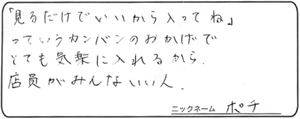 「見るだけでいいから入ってね」
っていうカンバンのおかげで
とても気楽に入れるから。
店員がみんないい人。
ニックネーム ポチ